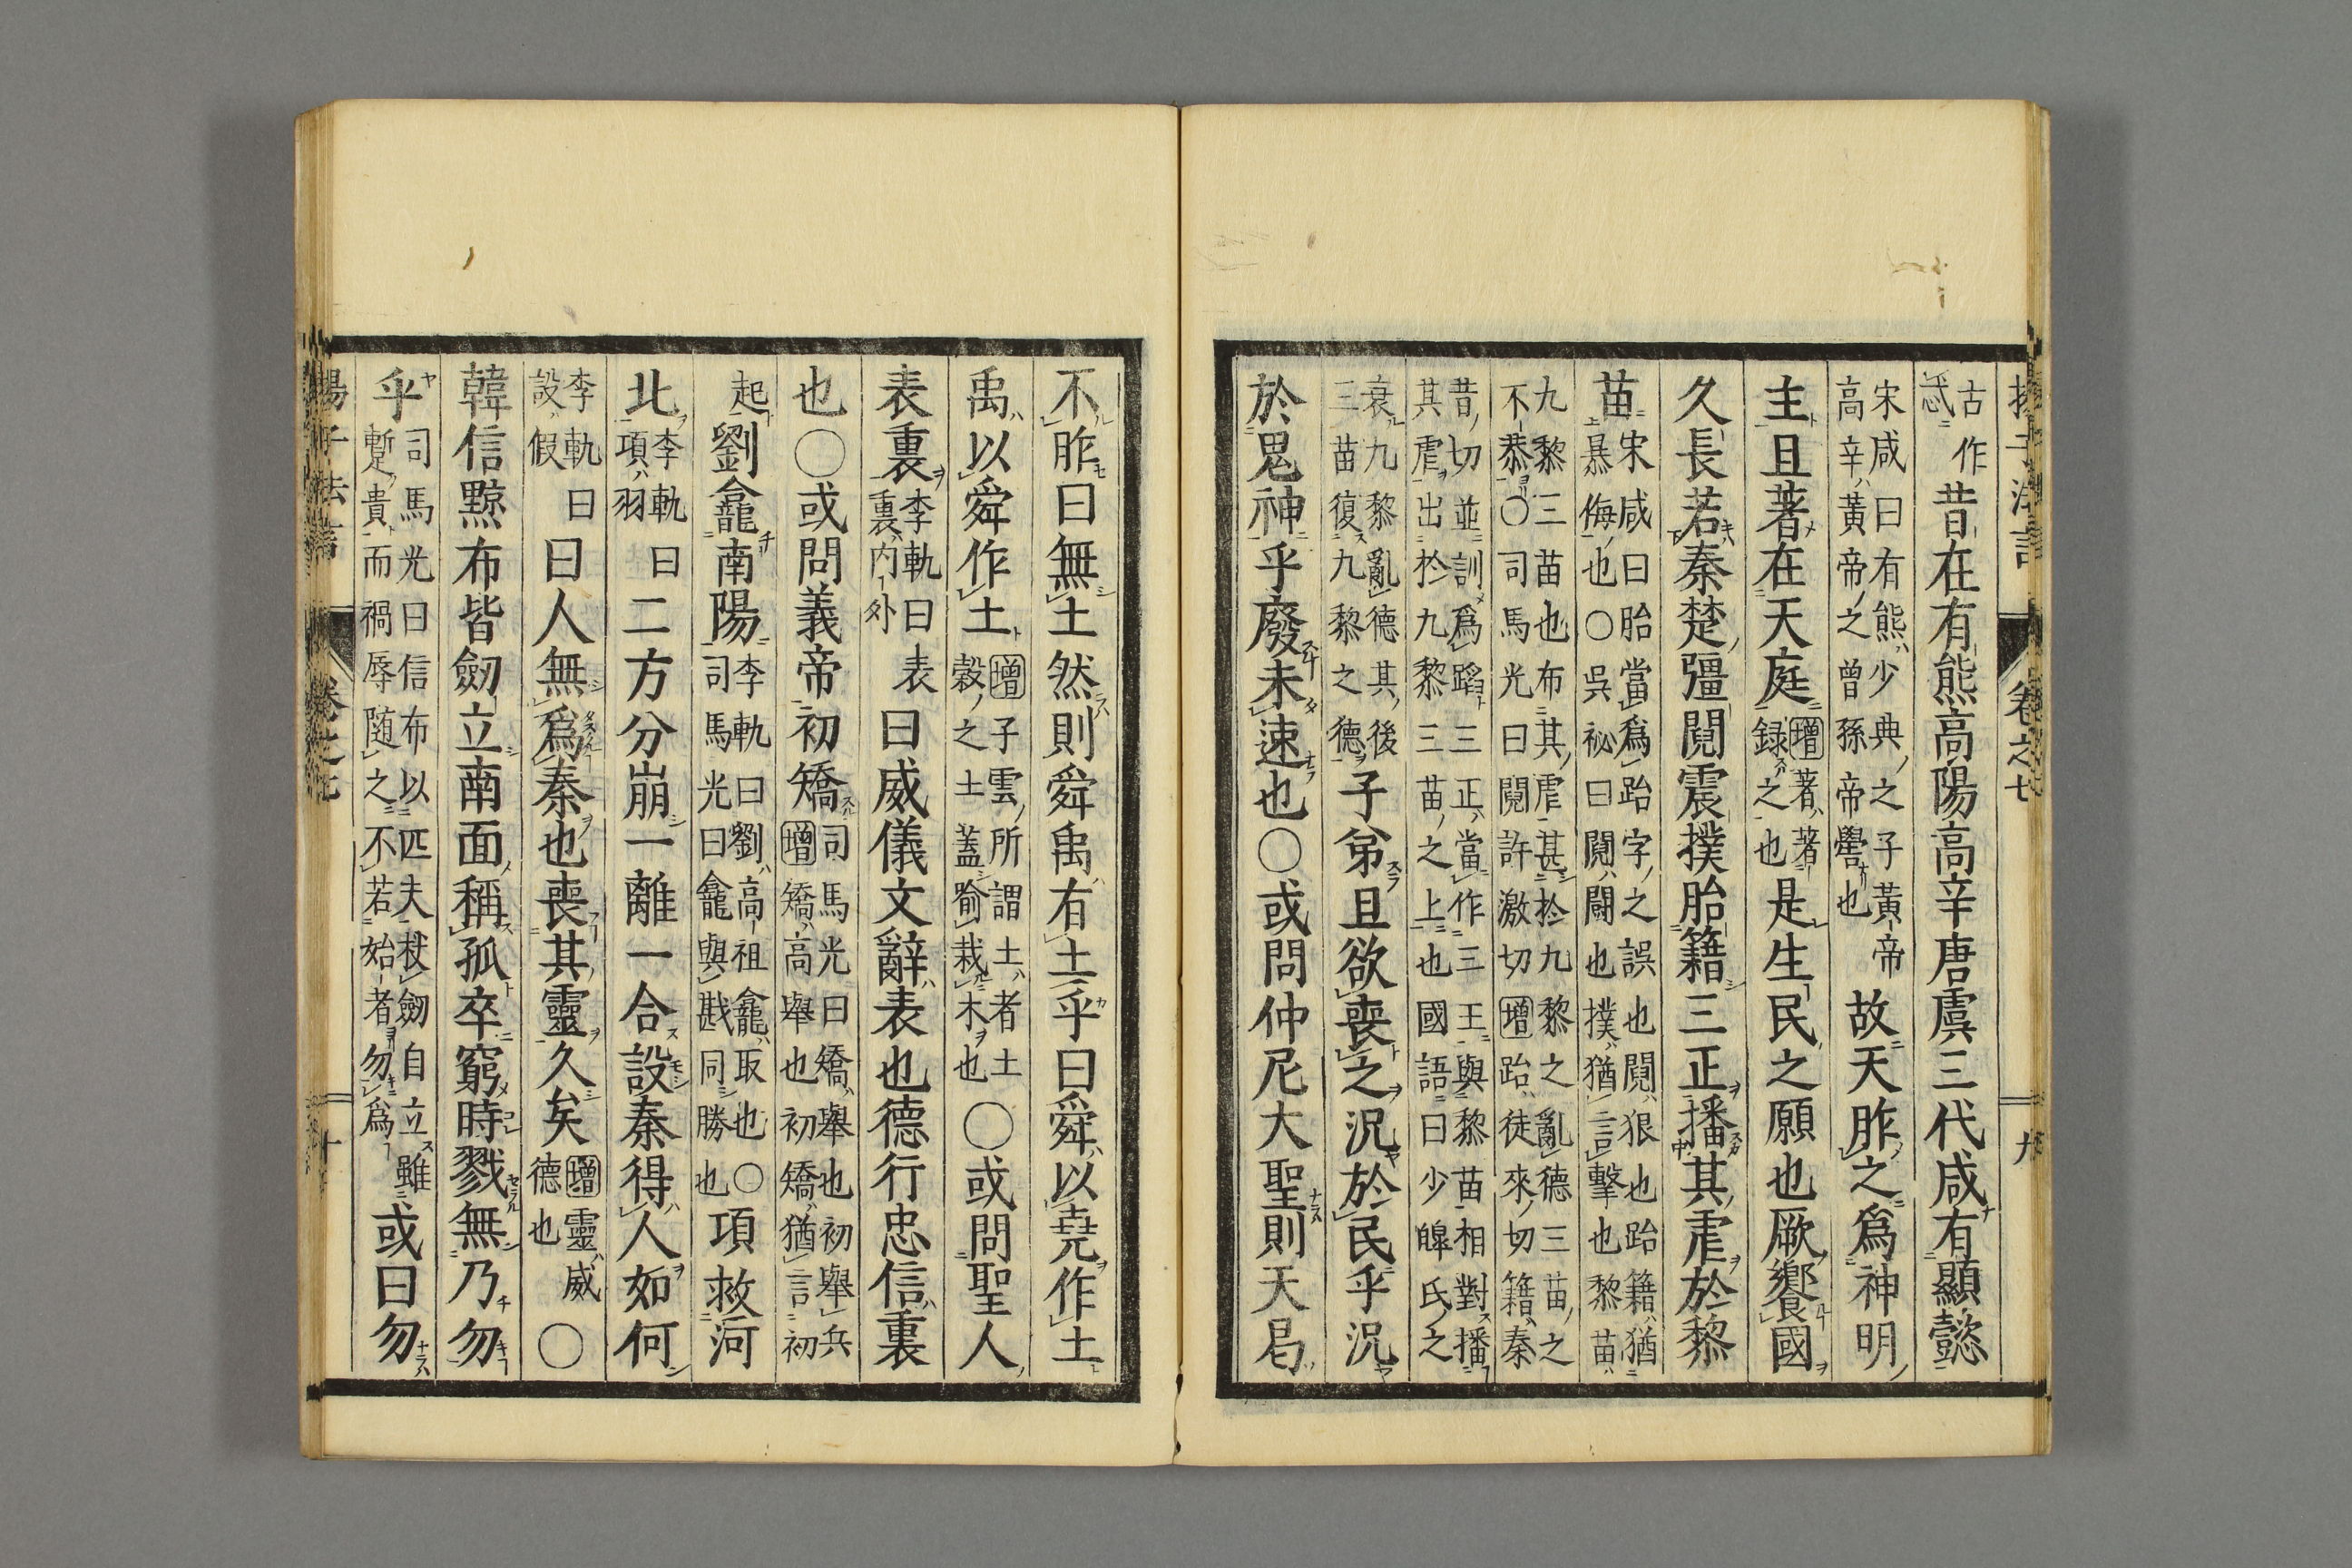 揚子法言　卷之七　九
古作
忒　昔在有熊高陽高辛唐虞三代咸有顯懿
宋咸曰有熊少典之子黃帝
高辛黃帝之曾孫帝嚳也　故天胙之爲神明
主且著在天庭　增著著
録之也　是生民之願也厥饗國
久長若秦楚彊鬩震撲胎籍三正播其虐於黎
苗　宋咸曰胎當爲跆字之誤也鬩狠也跆籍猶
暴侮也○吳祕曰鬩鬭也撲猶言擊也黎苗
九黎三苗也布其虐甚於九黎之亂德三苗之
不恭○司馬光曰鬩許激切增跆徒來切籍秦
昔切並訓爲蹈三正當作三王與黎苗相對播
其虐出於九黎三苗之上也國語曰少皥氏之
衰九黎亂德其後
三苗復九黎之德　子弟且欲喪之況於民乎況
於鬼神乎廢未速也○或問仲尼大聖則天曷
不胙曰無土然則舜禹有土乎曰舜以堯作土
禹以舜作土　增子雲所謂土者土
穀之土蓋喻栽木也　○或問聖人
表裏　李軌曰表
裏內外　曰威儀文辭表也德行忠信裏
也○或問義帝初矯　司馬光曰矯舉也初舉兵
增矯高舉也初矯猶言初
起　劉龕南陽　李軌曰劉高祖龕取也○
司馬光曰龕與戡同勝也　項救河
北　李軌曰
項羽　二方分崩一離一合設秦得人如何
李軌曰
設假　曰人無爲秦也喪其靈久矣　增靈威
德也　○
韓信黥布皆劒立南面稱孤卒窮時戮無乃勿
乎　司馬光曰信布以匹夫杖劒自立雖
蹔貴而禍辱随之不若始者勿爲　或曰勿
揚子法言　卷之七　十